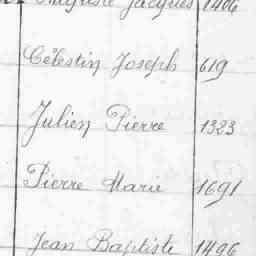 Auguste Jacques 1406
Célestin Joseph 619
Julien Pierre 1323
Pierre Marie 1691
Jean Baptiste 1496